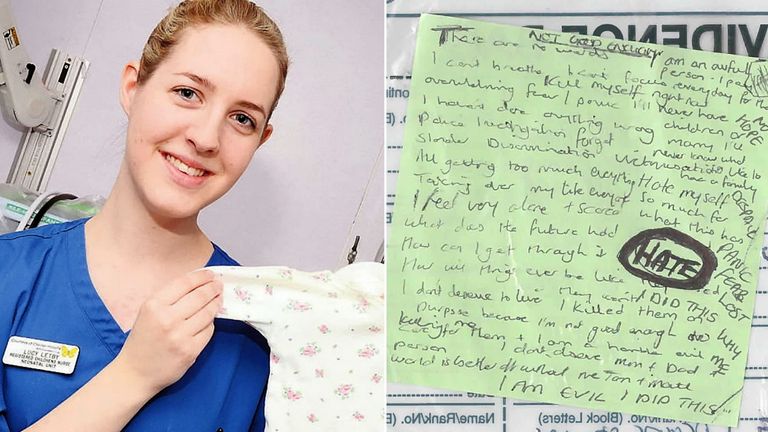 Countess of Chester Hospital
LUCY LETBY
REGISTERED CHILDRENS NURSE
NEONATAL UNIT
VIDENCE
NOT GOOD ENOUGH
There are no words
I am an awful person - I pay
everyday for that
I can't breathe I can't focus
Kill myself right now
overwhelming fear / panic
I'll never have
children or marry I'll
never know what
it's like to
have a family
NO
HOPE
I haven't done anything wrong
Police investigation forget
Slander Discrimination Victimisation
All getting too much everything
Hate myself
so much for
what this has
DESPAIR
PANIC
FEAR
LOST
Taking over my life everyone
I feel very alone + scared
What does the future hold
How can I get through it
How will things ever be like
HATE
I DID THIS
WHY
ME
I don't deserve to live
I killed them on
purpose because I'm not good enough
to care for them + I am a horrible evil
person
I don't deserve mum + Dad
world is better off without me
I AM EVIL I DID THIS
Name/Rank/No.
(Block Letters)